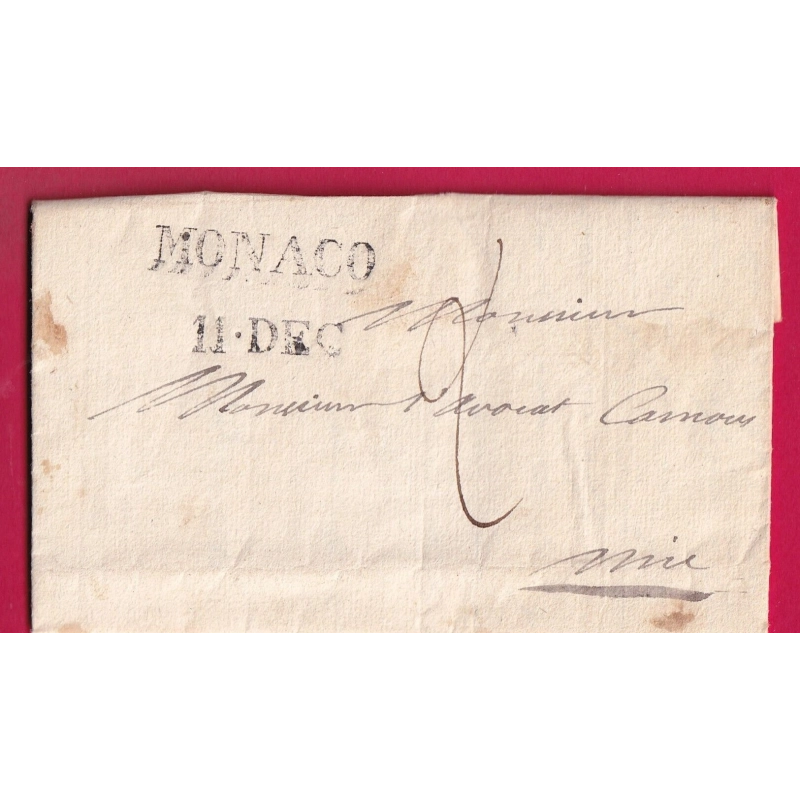 MONACO
11·DEC
Monsieur
Monsieur l'avocat Camous
Nice